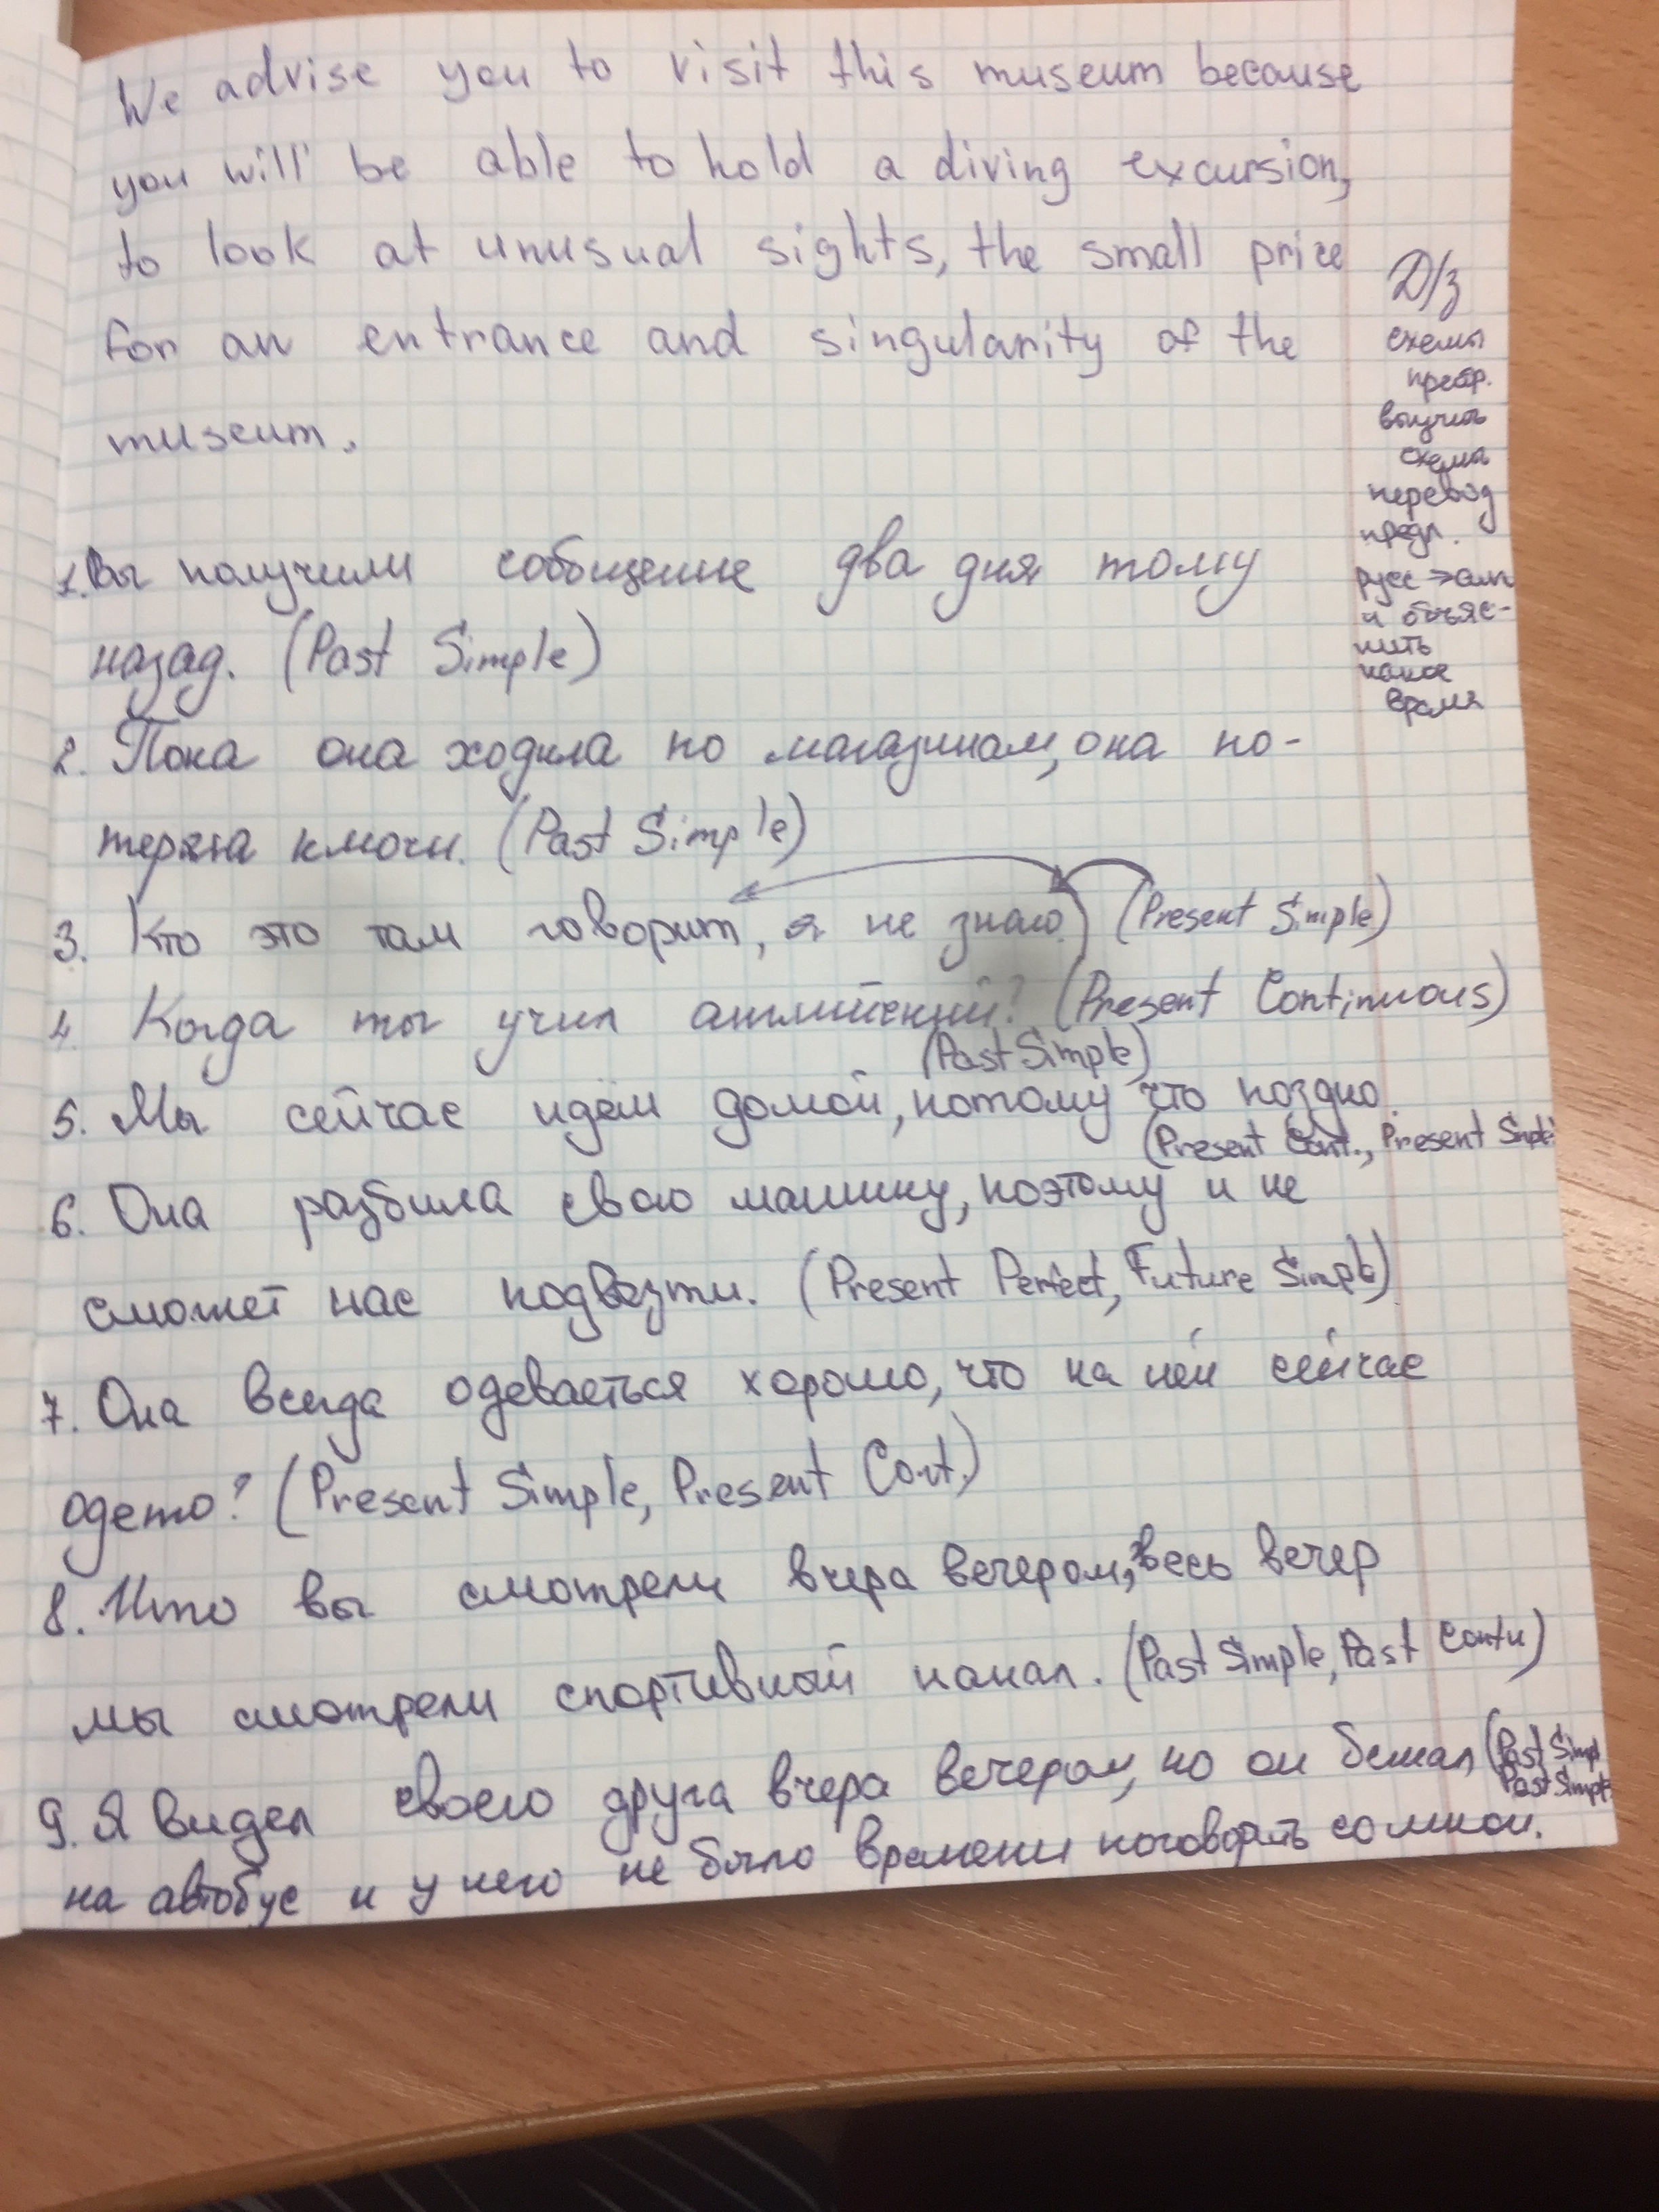 We advise you to visit this museum because
you will be able to hold a diving excursion,
to look at unusual sights, the small price
for an entrance and singularity of the
museum.
Д/з
схемы
выучить
схемы
перевод
предл.
русс → англ
и объяс-
нить
какое
время
1. Вы получили сообщение два дня тому
назад. (Past Simple)
2. Пока она ходила по магазинам, она по-
теряла ключи. (Past Simple)
3. Кто это там говорит, я не знаю. (Present Simple)
4. Когда ты учил английский? (Present Continuous)
(Past Simple)
5. Мы сейчас идём домой, потому что поздно.
(Present Cont., Present Simpl.
6. Она разбила свою машину, поэтому и не
сможет нас подвезти. (Present Perfect, Future Simple)
7. Она всегда одеваеться хорошо, что на ней сейчас
одето? (Present Simple, Present Cont.)
8. Что вы смотрели вчера вечером, весь вечер
мы смотрели спортивный канал. (Past Simple, Past Contn)
9. Я видел своего друга вчера вечером, но он бежал (Past Simpl
Past Simple
на автобус и у него не было времени поговорить со мной.